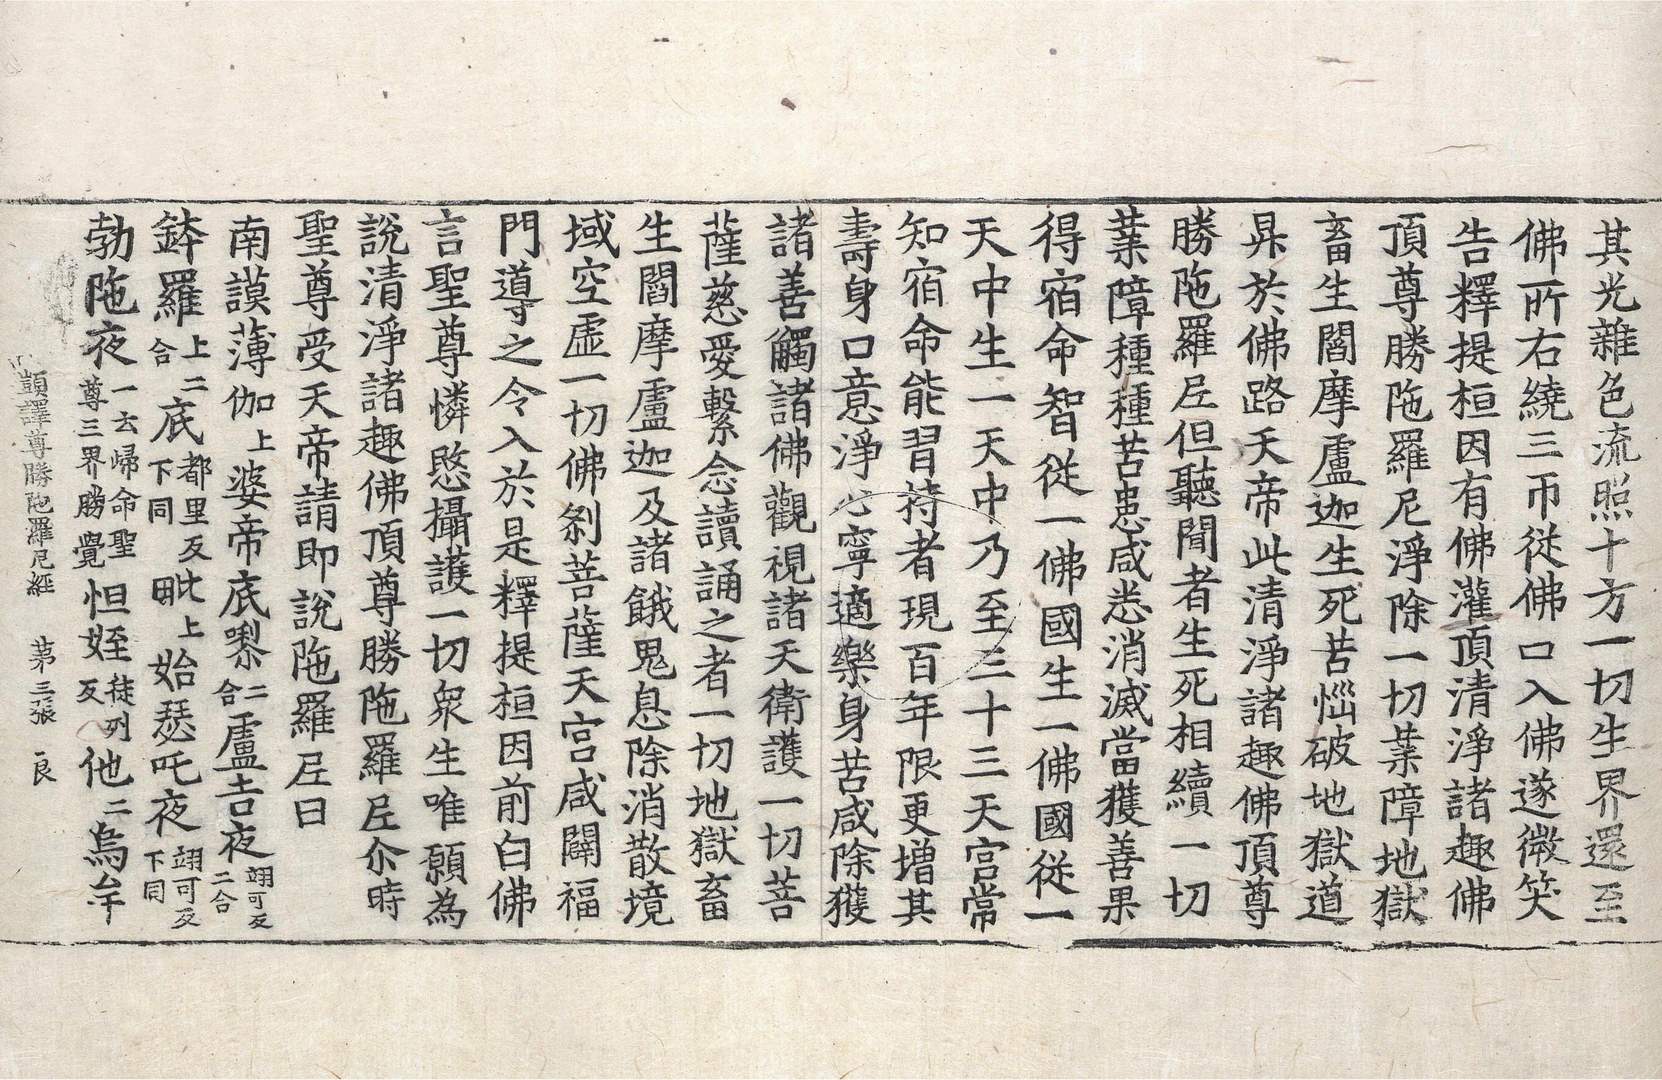 其光雜色流照十方一切生界還至
佛所右繞三帀從佛口入佛遂微笑
告釋提桓因有佛灌頂清淨諸趣佛
頂尊勝陁羅尼淨除一切業障地獄
畜生閻摩盧迦生死苦惱破地獄道
昇於佛路天帝此清淨諸趣佛頂尊
勝陁羅尼但聽聞者生死相續一切
業障種種苦患咸悉消滅當獲善果
得宿命智從一佛國生一佛國從一
天中生一天中乃至三十三天宮常
知宿命能習持者現百年限更增其
壽身口意淨心寧適樂身苦咸除獲
諸善觸諸佛觀視諸天衛護一切菩
薩慈愛繫念讀誦之者一切地獄畜
生閻摩盧迦及諸餓鬼息除消散境
域空虛一切佛剎菩薩天宮咸闢福
門導之令入於是釋提桓因前白佛
言聖尊尊憐愍攝護一切衆生唯願為
說清淨諸趣佛頂尊勝陁羅尼尒時
聖尊受天帝請即說陁羅尼曰
南謨薄伽上婆帝底㘑二合盧吉夜翊可反二合
鉢羅上二合底都里反下同毗比上始瑟吒夜翊可反下同
勃陁夜一云歸命聖尊三界勝覺怛姪徒列反他二烏牟
顗譯尊勝陁羅尼經 第三張 良